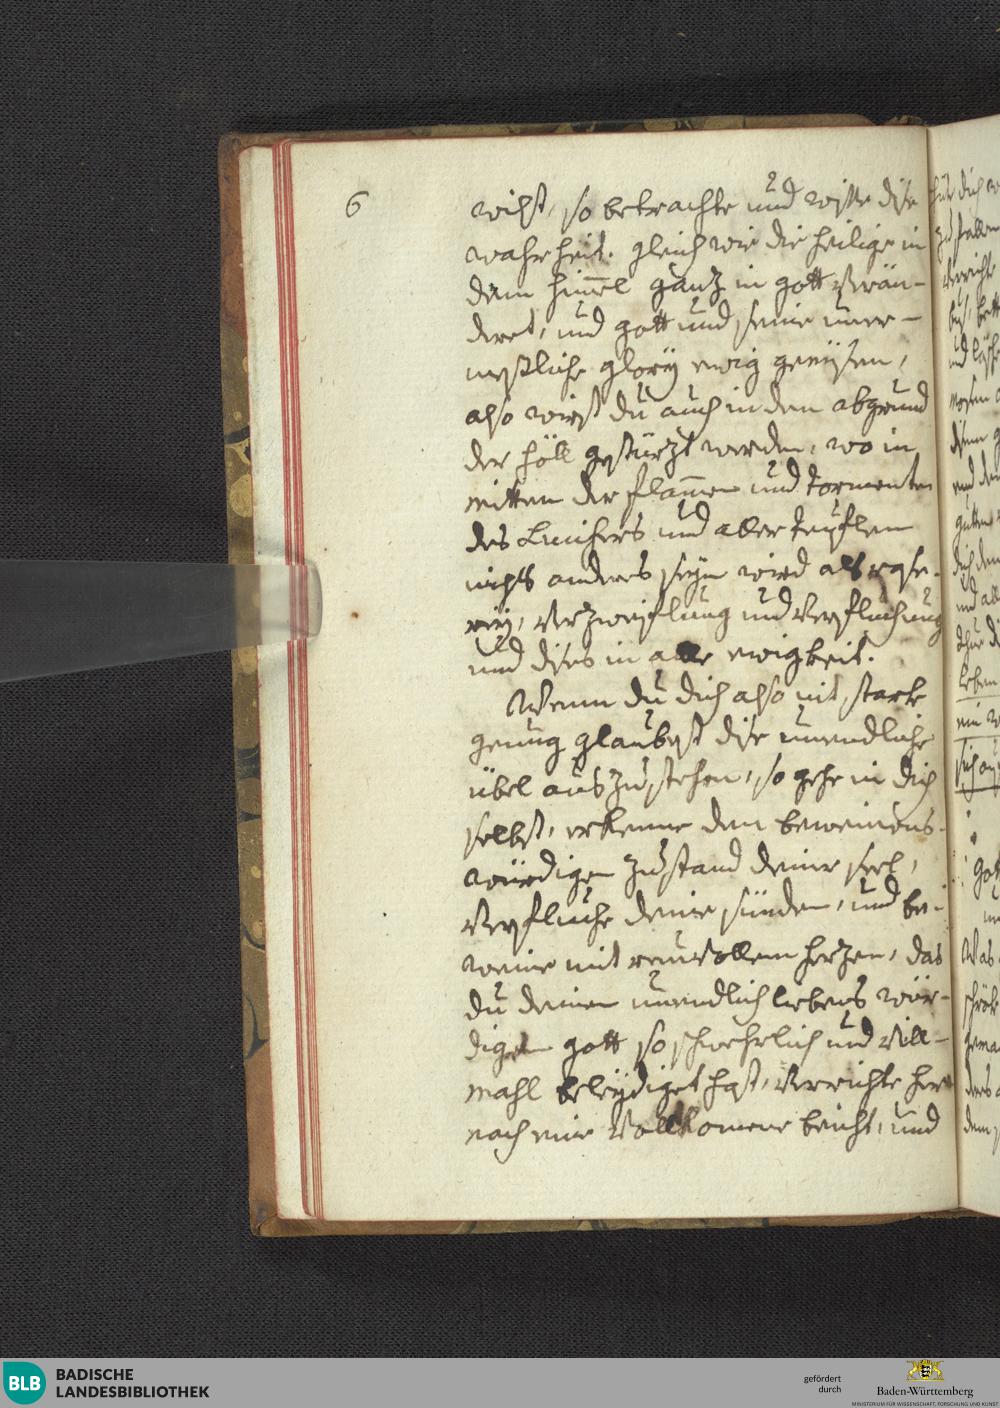 6
wilst, so betrachte und wisse dise
wahrheit. gleich wie die heilige in
dem him̅el gantz in gott verän-
dert, und gott und seine uner-
mestliche glory ewig geniesen,
also wirst du auch in den abgrund
der höll gestürzt werden, wo in
mitten der flam̅en und tormenten
des Lucifers und aller teuflen
nichts anders seyn wird als rase-
rey, verzweiflung und verfluchung
und dises in alle ewigkeit.
Wenn du dich also nit starck
genug glaubest dise unendliche
übel auszustehen, so gehe in dich
selbst, erkenne den beweinens-
würdigen zustand deiner seel,
verfluche deine sünden, und be-
weine mit reuvollem herzen, das
du deinen unendlich liebens wür-
digen gott so schwehrlich und vill-
mahl beleydiget hast, verrichte her
nach eine vollkomene beicht, und
BLB
BADISCHE
LANDESBIBLIOTHEK
gefördert
durch
Baden-Württemberg
MINISTERIUM FÜR WISSENSCHAFT, FORSCHUNG UND KUNST